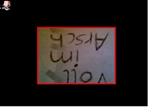 voll
im
Arsch